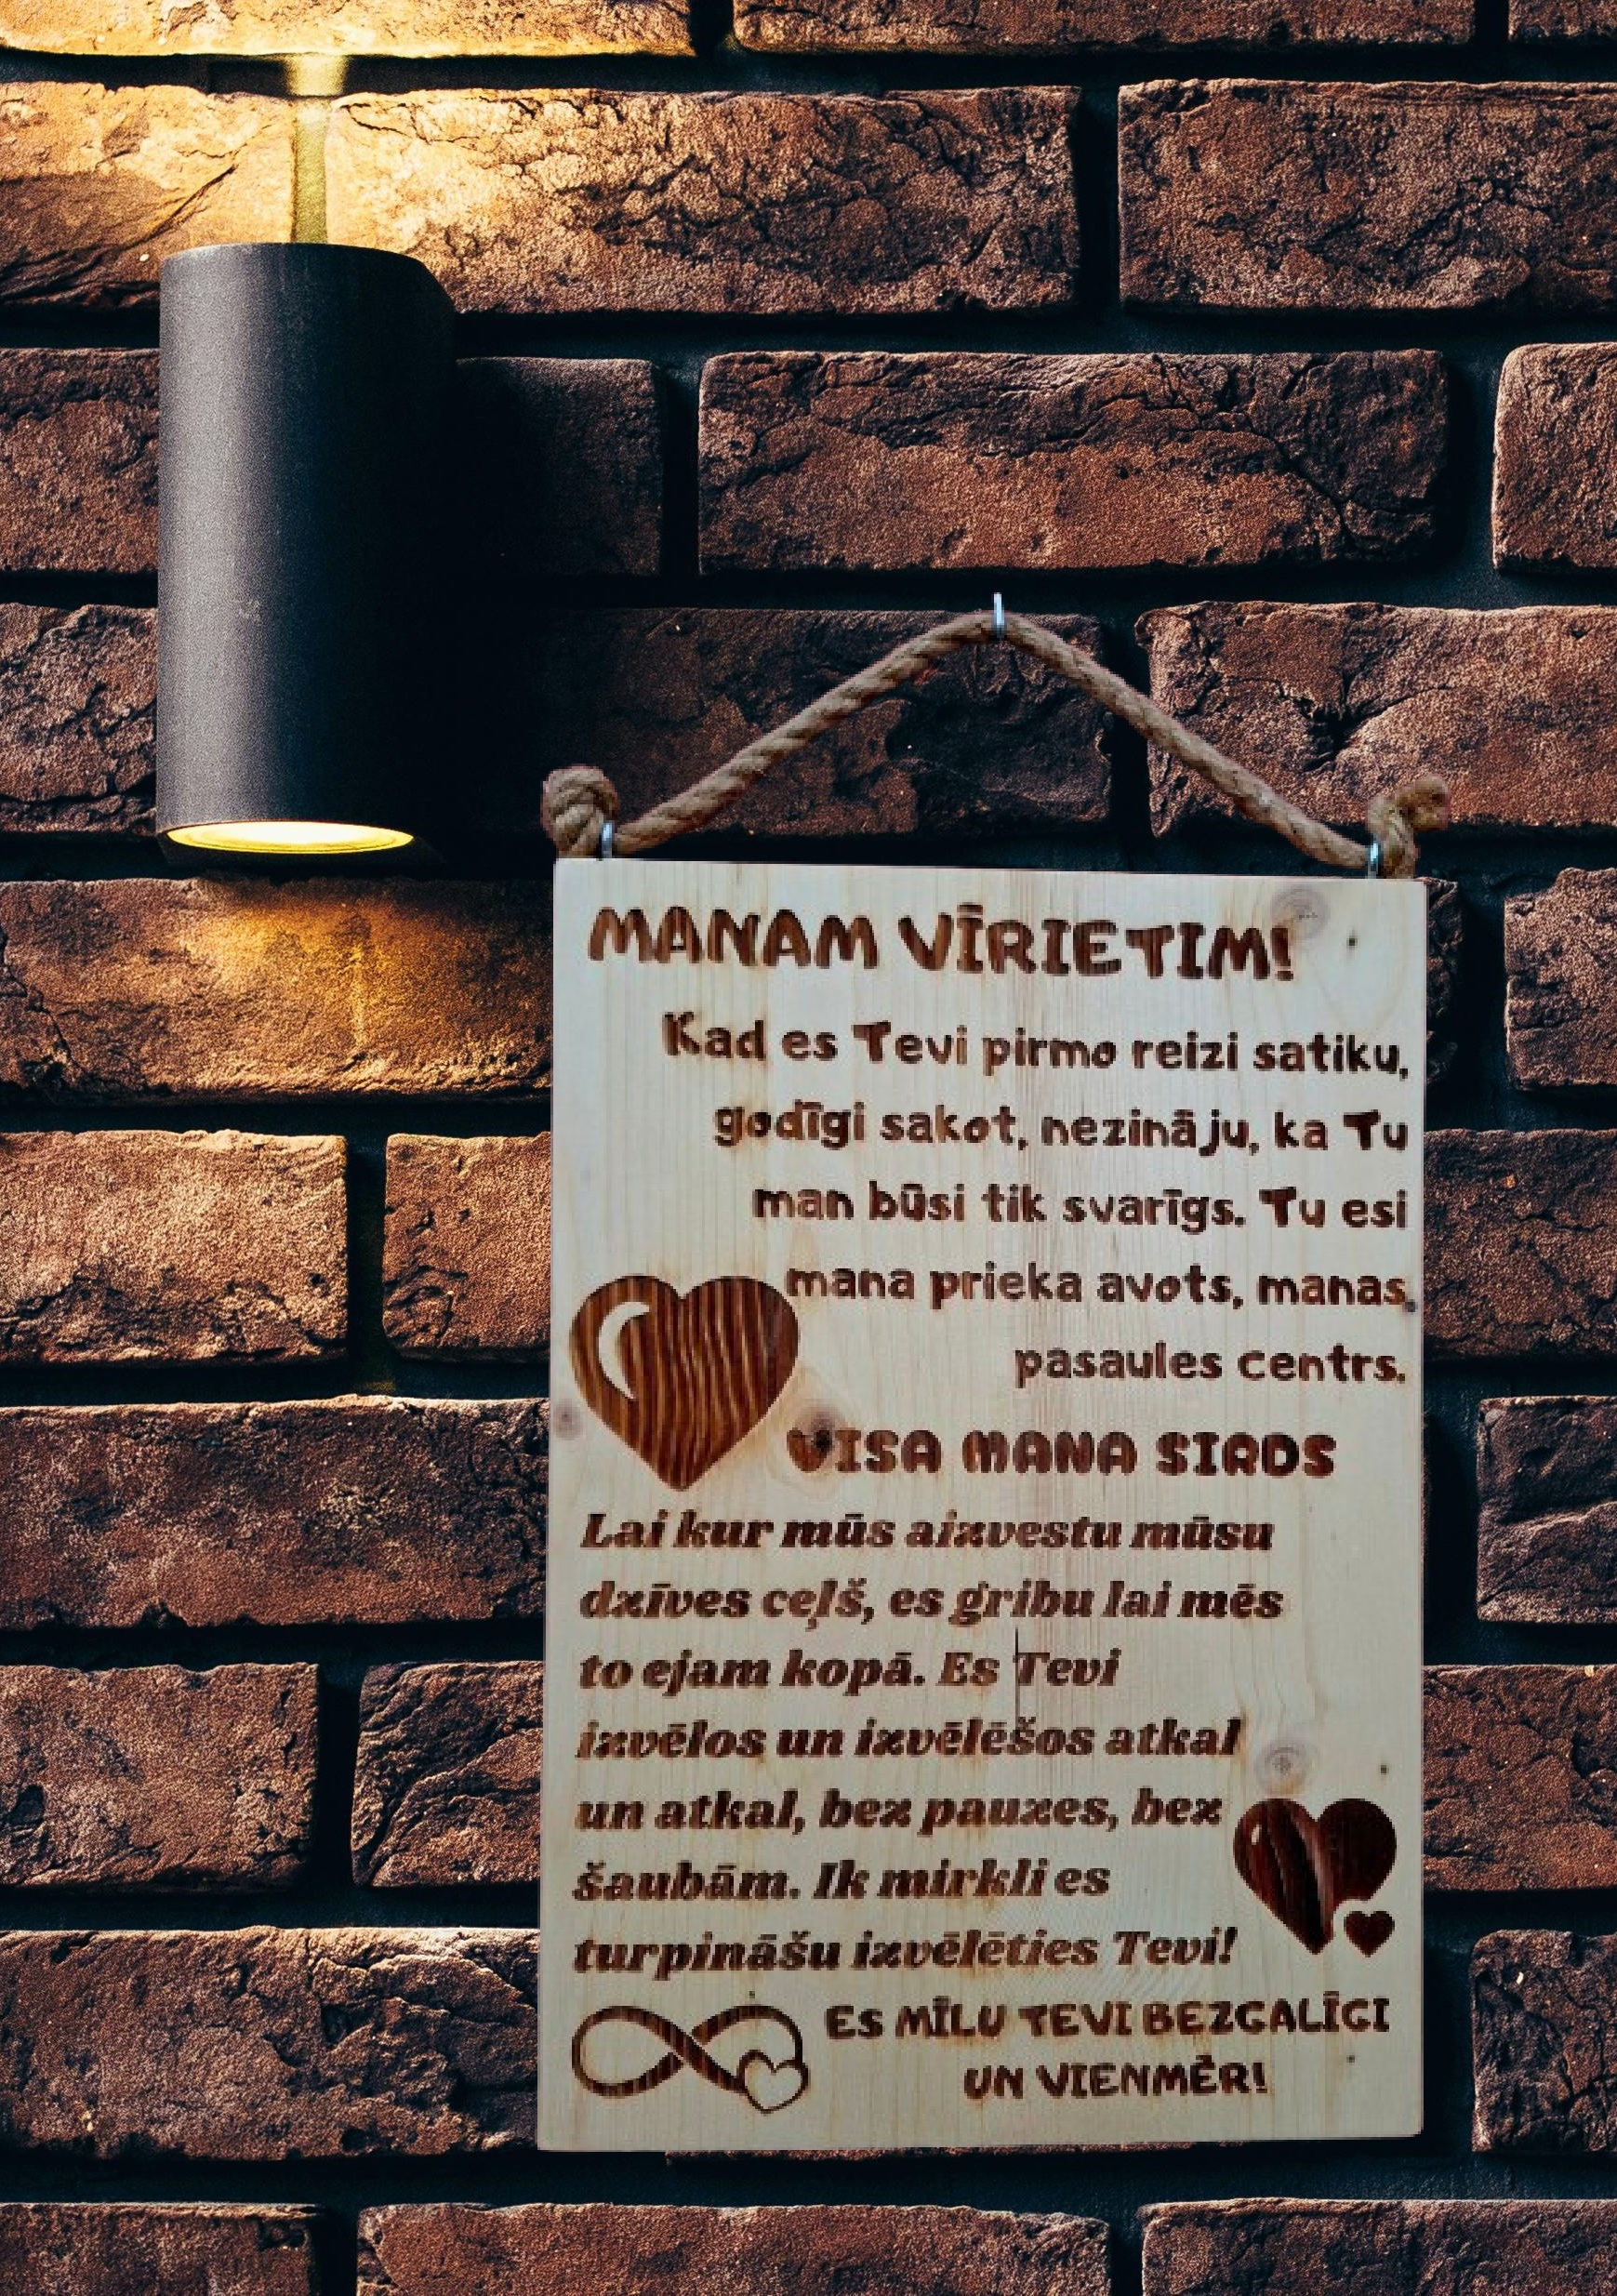 MANAM VĪRIETIM!
Kad es Tevi pirmo reizi satiku,
godīgi sakot, nezināju, ka Tu
man būsi tik svarīgs. Tu esi
mana prieka avots, manas
pasaules centrs.
VISA MANA SIRDS
Lai kur mūs aizvestu mūsu
dzīves ceļš, es gribu lai mēs
to ejam kopā. Es Tevi
izvēlos un izvēlēšos atkal
un atkal, bez pauzes, bez
šaubām. Ik mirkli es
turpināšu izvēlēties Tevi!
ES MĪLU TEVI BEZGALĪGI
UN VIENMĒR!